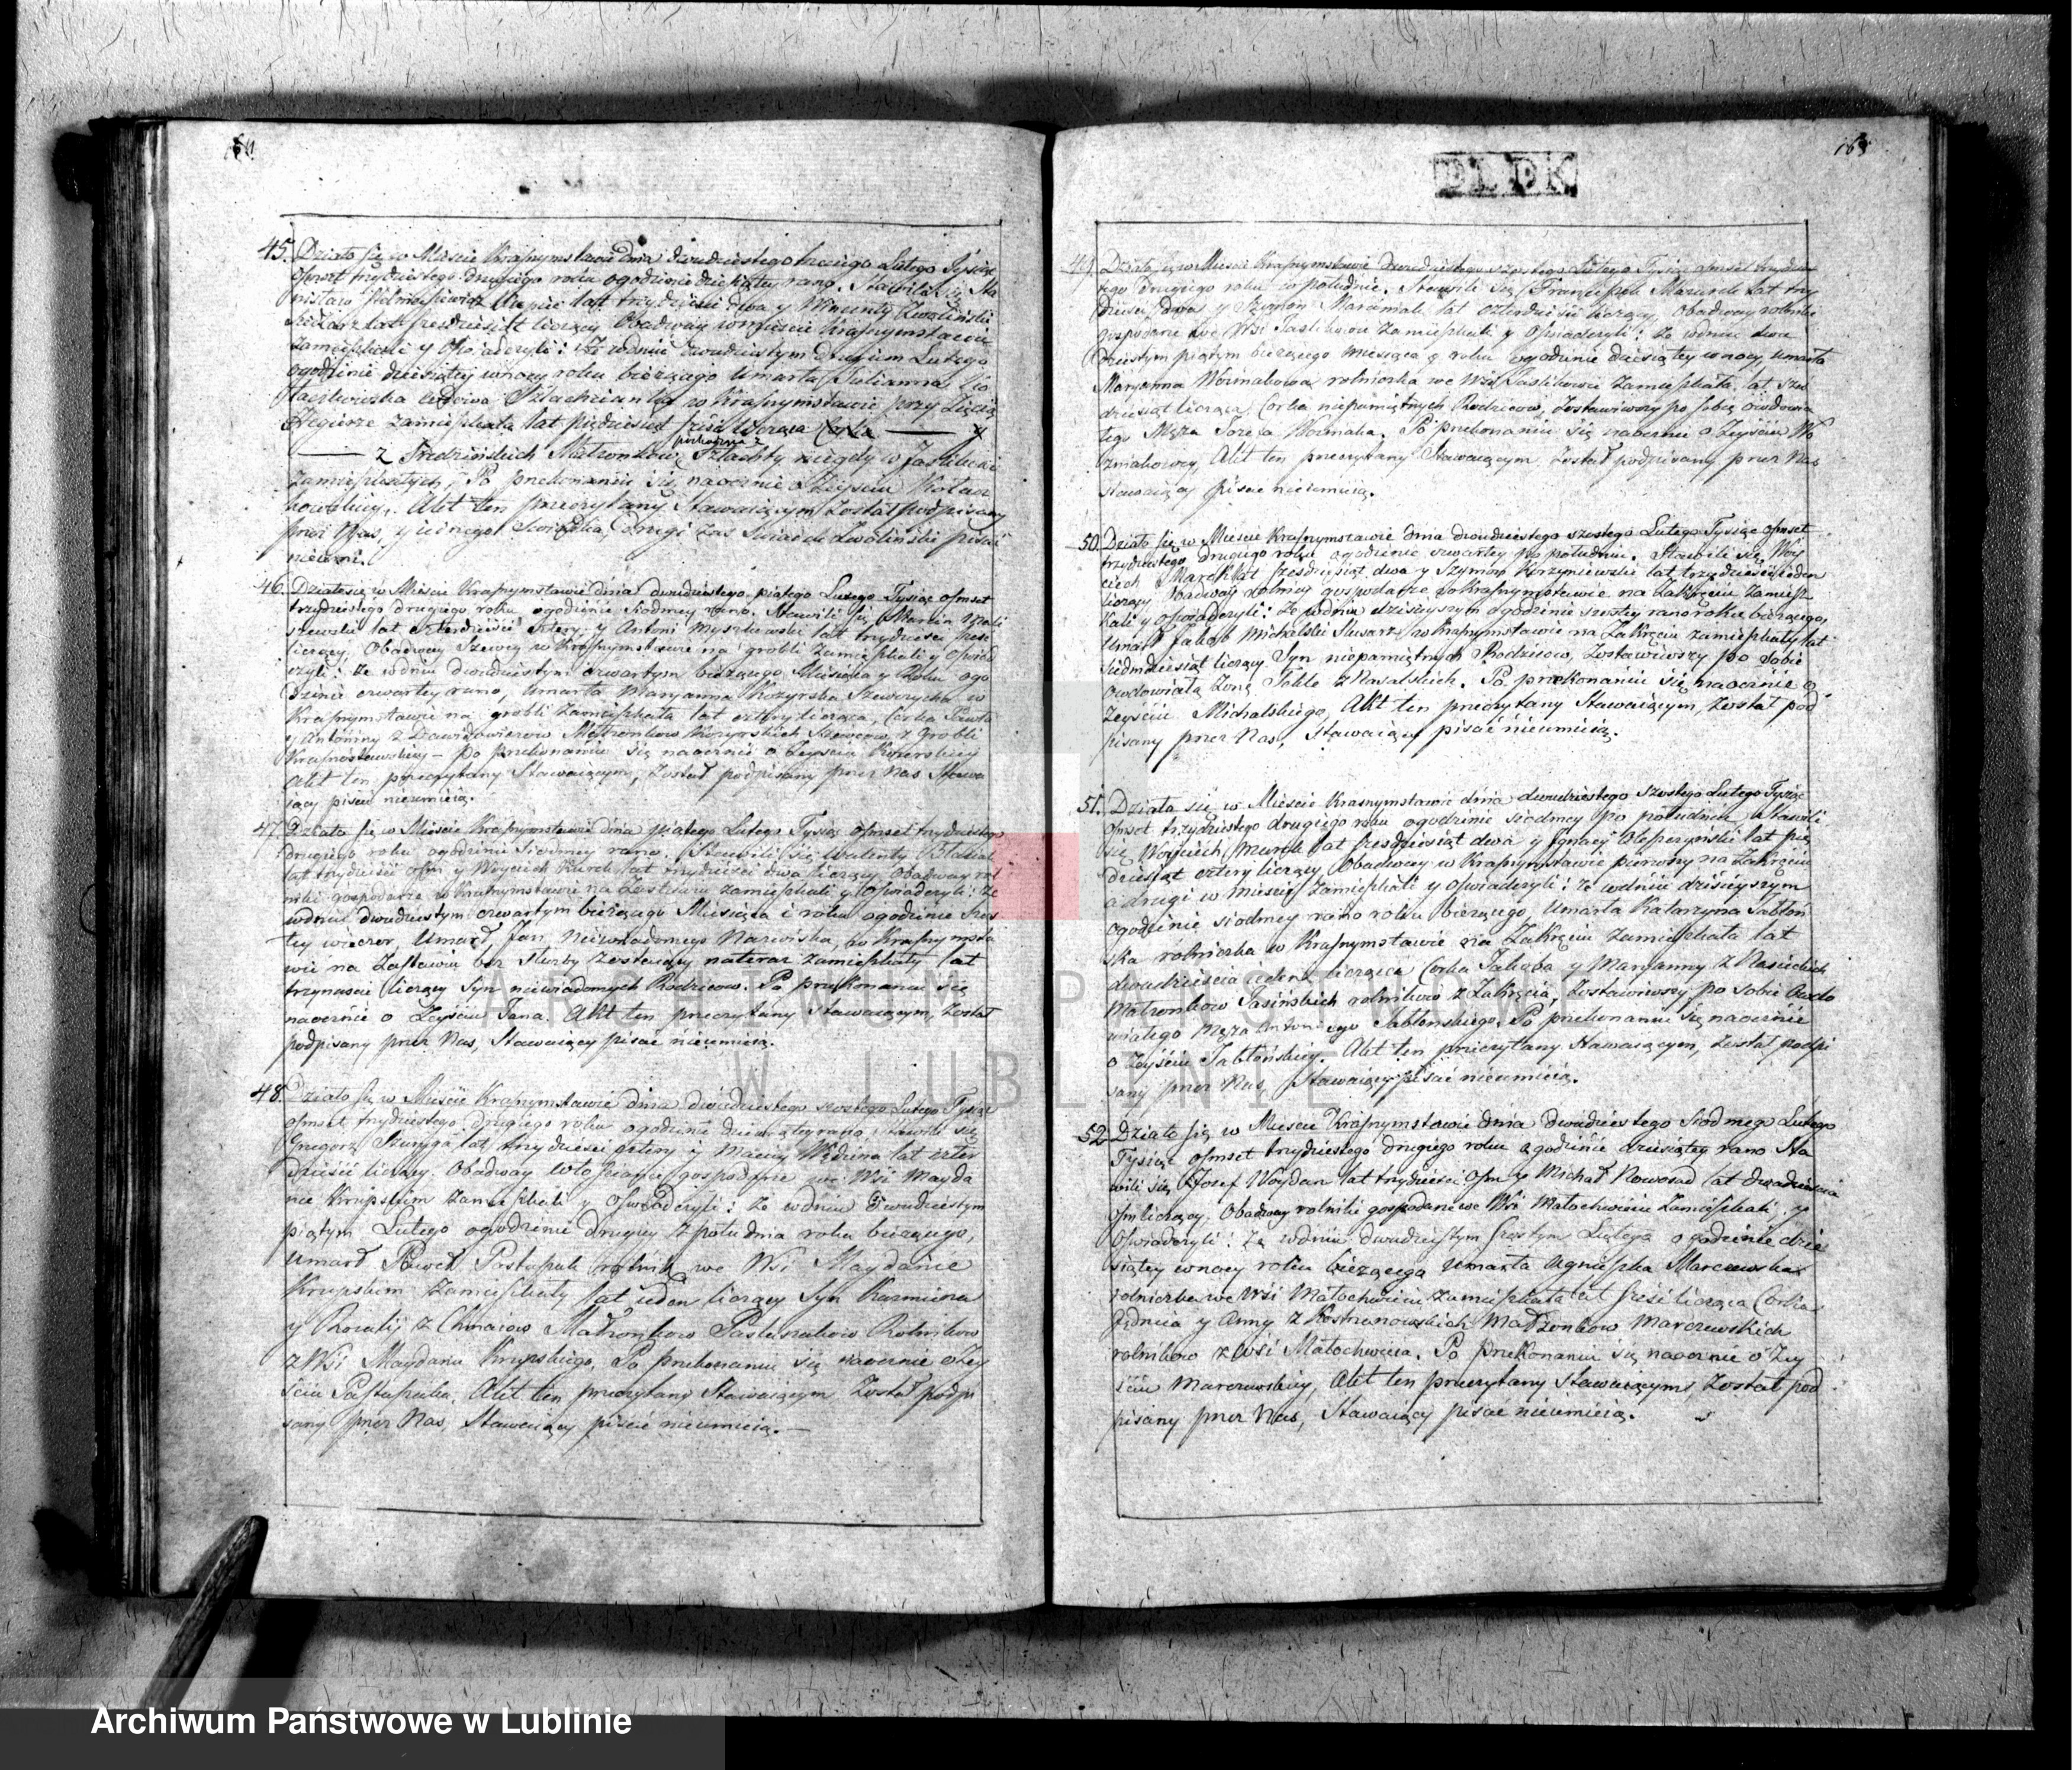 164.
45. Działo się w Mieście Krasnymstawie dnia dwudziestego trzeciego Lutego Tysiąc
Ośmset trzydziestego drugiego roku o godzinie dziesiątey rano. Stawili się Sta
nisław lat trzydzieści dwa y Wincenty Zwoliński
lat sześdziesiąt liczący Obadway w mieście Krasnymstawie
Zamieszkali y Oświadczyli: Że wdniu dwudziestym drugiem Lutego
ogodzinie dziesiątey wnocy roku bieżącego Umarła Julianna Ko
tackowska wdowa Szlachcianka w Krasnymstawie przy
zamieszkała lat pięćdziesiąt sześć licząca Corka y
pochodząca z
z Średzińskich Małżonkow Szlachty niegdy w
Zamieszkałych, Po przekonaniu się naocznie o Zeyściu Kotac
kowskiey, Akt ten przeczytany Stawaiącym Został podpisany
przez Nas, y iednego Swiadka, drugi zas Swiadek Zwoliński pisać
nieumi.
46. Działo się w Mieście Krasnymstawie dnia dwudziestego piątego Lutego Tysiąc ośmset
trzydziestego drugiego roku ogodzinie siodmey rano. Stawili się Marcin
szewski lat czterdzieści cztery y Antoni Myszkowski lat trzydzieści sześć
liczący Obadway Szewcy w Krasnymstawie na grobli Zamieszkali y Oświad
czyli: Że wdniu dwudziestym czwartym bieżącego Miesiąca y Roku ogo
dzinie czwartey rano, Umarła Maryanna Kozyrska Szewczycha w
Krasnymstawie na grobli Zamieszkała lat cztery licząca, Corka Pawła
y Antoniny z Małżonkow Kozyrskich Szewcow z Grobli
Krasnostawskiey – Po przekonaniu się naocznie o Zeyściu Kozerskiey
Akt ten przeczytany Stawaiącym, Został podpisany przez Nas Stawa
iący pisać nieumieią.
47. Działo się w Mieście Krasnymstawie dnia piątego Lutego Tysiąc Ośmset trzydziestego
drugiego roku ogodzinie siodmey rano. Stawili się Walenty
lat trzydzieści ośm y Woyciech Kurek lat trzydzieści dwa liczący Obadway rol
niki gospodarze w Krasnymstawie na Zastawiu zamieszkali y Oświadczyli: Że
wdniu dwudziestym czwartym bieżącego Miesiąca i roku ogodzinie szos
tey wieczor, Umarł Jan Niewiadomego Nazwiska, w Krasnymsta
wie na Zastawiu bez służby zostaiący nateraz zamieszkały lat
trzynaście liczący Syn niewiadomych Rodzicow. Po przekonaniu się
naocznie o Zeyściu Jana. Akt ten przeczytany Stawaiącym, Został
podpisany przez Nas, Stawaiący pisać nieumieią.
48. Działo się w Mieście Krasnymstawie dnia dwudziestego szostego Lutego Tysiąc
ośmset trzydziestego drugiego roku ogodzinie dziewiątey rano, Stawili się
Grzegorz Szuryga lat trzydzieści cztery y Maciey Wędzina lat czter
dzieści liczący Obadway Włościanie gospodarze we Wsi Mayda
nie Krupskim Zamieszkali y Oświadczyli: Że wdniu Dwudziestym
piątym Lutego ogodzinie drugiey z południa roku bieżącego,
Umarł Paweł Pastuszak rolnik we Wsi Maydanie
Krupskim Zamieszkały lat ieden liczący Syn Kazmierza
y Rozalii z Chmaiow Małżonkow Pastuszakow Rolnikow
z Wsi Maydanu Krupskiego, Po przekonaniu się naocznie o Zey
ściu Pastuszaka. Akt ten przeczytany Stawaiącym Został podpi
sany przez Nas, Stawaiący pisać nieumieią.
165
DLDK
49. Działo się w Mieście Krasnymstawie Dwudziestego szostego Lutego Tysiąc ośmset trzydzies
tego drugiego roku wpołudnie. Stawili się Franciszek Mazurek lat trzy
dzieści dwa y Szymon Marciniak lat czterdzieści liczący, Obadway rolniki
gospodarze we Wsi Zamieszkali y Oświadczyli: Że wdniu dwu
dziestym piątym bieżącego miesiąca y roku ogodzinie dziesiątey wnocy, Umarła
Maryanna Woźniakowa rolniczka we Wsi Zamieszkała, lat sześ
dziesiąt licząca, Corka niepamiętnych Rodzicow, Zostawiwszy po sobie owdowia
łego Męża Jozefa Woźniaka. Po przekonaniu się naocznie o Zeyściu Wo
zniakowey, Akt ten przeczytany Stawaiącym, Został podpisany przez Nas
Stawaiący pisać nieumieią.
50. Działo się w Mieście Krasnymstawie dnia dwudziestego szostego Lutego Tysiąc ośmset
trzydziestego drugiego roku ogodzinie czwartey po południu. Stawili się Woy
ciech Marek lat sześdziesiąt dwa y Szymon Korzyniewski lat trzydzieści ieden
liczący Obadway rolnicy gospodarze w Krasnymstawie na Zakręciu Zamiesz
kali y oświadczyli: Że wdniu dzisieyszym ogodzinie szostey rano roku bieżącego,
Umarł Jakob Michalski Slusarz w Krasnymstawie na Zakręciu zamieszkały lat
Siedmdziesiąt liczący Syn niepamiętnych Rodzicow, Zostawiwszy po sobie
owdowiałą Żonę Teklę z Kowalskich. Po przekonaniu się naocznie o
Zeyściu Michalskiego, Akt ten przeczytany Stawaiącym, został pod
pisany przez Nas, Stawaiący pisać nieumieią.
51. Działo się w Mieście Krasnymstawie dnia dwudziestego Szostego Lutego Tysiąc
Ośmset trzydziestego drugiego roku ogodzinie siodmey po południu Stawili
się Woyciech Marek lat sześdziesiąt dwa y Ignacy Oleszczyński lat pię
dziesiąt cztery liczący, Obadway w Krasnymstawie pierwszy na Zakręciu
a drugi w Mieście Zamieszkali y oświadczyli: że wdniu dzisieyszym
ogodzinie siodmey rano roku bieżącego, Umarła Katarzyna Jabłoń
ska rolniczka w Krasnymstawie na Zakręciu Zamieszkała lat
dwadzieścia ieden licząca Corka Jakoba y Maryanny z Nasieckich
Małżonkow Jasińskich rolnikow z Zakręcia, Zostawiwszy po sobie Owdo
wiałego Męża Antoniego Jabłonskiego, Po przekonaniu się naocznie
o Zeyściu Jabłońskiey. Akt ten przeczytany Stawaiącym, został podpi
sany przez Nas, Stawaiący pisać nieumieią.
52 Działo się w Mieście Krasnymstawie dnia Dwudziestego Siodmego Lutego
Tysiąc ośmset trzydziestego drugiego roku ogodzinie dziesiątey rano Sta
wili się Jozef Woydan lat trzydzieści ośm y Michał Nowosad lat dwadzieścia
ośm liczący, Obadway rolniki gospodarze we Wsi Małochwieiu Zamieszkali y
Oświadczyli: Że wdniu dwudziestym szostym Lutego ogodzinie dzie
siątey wnocy roku bieżącego umarła Agnieszka Marczewska
rolniczka we Wsi Małochwieiu zamieszkała lat sześć licząca Corka
Jędrzeia y Anny z Kostrzanowskich Małżonkow Marczewskich
rolnikow z Wsi Małochwieia. Po przekonaniu się naocznie o Zey
ściu Marczewskiey, Akt ten przeczytany Stawaiącym, Został pod
pisany przez Nas, Stawaiący pisać nieumieią.
ARCHIWUM PAŃSTWOWE
W LUBLINIE
Archiwum Państwowe w Lublinie